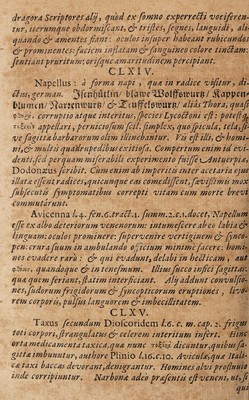 dragora Scriptores alij, quòd ex somno experrecti vociferentur, iterumque obdormiscant, & tristes, segnes, languidi, aliquando & amentes fiant: oculos insuper habeant rubicundos & prominentes: faciem inflatam & sanguineo colore tinctam: sentiant pruritum: orisque amaritudinem percipiant.
CLXIV.
Napellus à forma napi, qua in radice visitur, dictus, german. Isenhütlin, blaw Wolffswurtz, Kappenblumen, Narrenwurtz & Teuffelswurtz, alijs Thora, quasi corruptio atque interitus, species Lycoctoni est: potest & appellari, perniciosum scil. simplex, quo spicula, tela, sive sagittæ barbarorum olim illinebantur. Vis est illi, & homini, & multis quadrupedibus exitiosa. Compertum enim id evidenti, sed perquam miserabili experimento fuisse Antuerpiæ, Dodonæus scribit. Cum enim ab imperitis inter acetaria ejus illata essent radices, quicunque eas comedissent, sævissimis mox subsecutis symptomatibus correpti vitam cum morte brevi commutârunt.
Avicenna l.4. fen.6. tract.1. summ.2.c.1. docet, Napellum esse ex albo deteriorum venenorum: intumescere ab eo labia & linguam: oculos prominere: supervenire vertiginem & syncopen: crura suum in ambulando officium minimè facere: homines evadere rarò: & qui evadunt, delabi in hecticam, aut, quandoque & in tenesmum. Illius succo infici sagittas: quæ quem feriant, statim interficiant. Alij addunt convulsiones, sudorem frigidorum & syncopticorum eruptiones, livorem corporis, pulsus languorem & imbecillitatem.
CLXV.
Taxus secundum Dioscoridem l.6. c. m. cap. 2. frigus toti corporis, strangulatus & celerem interitum infert. Hinc orta medicamenta toxica, quæ nunc dicuntur, quibus sagitta imbuuntur, authore Plinio l.16.c.10. Aviculæ, quæ Italica taxi baccas devorant, denigrantur. Homines alvi profluvio inde corripiuntur. Narbonæ adeò præsenti est veneni, ut,